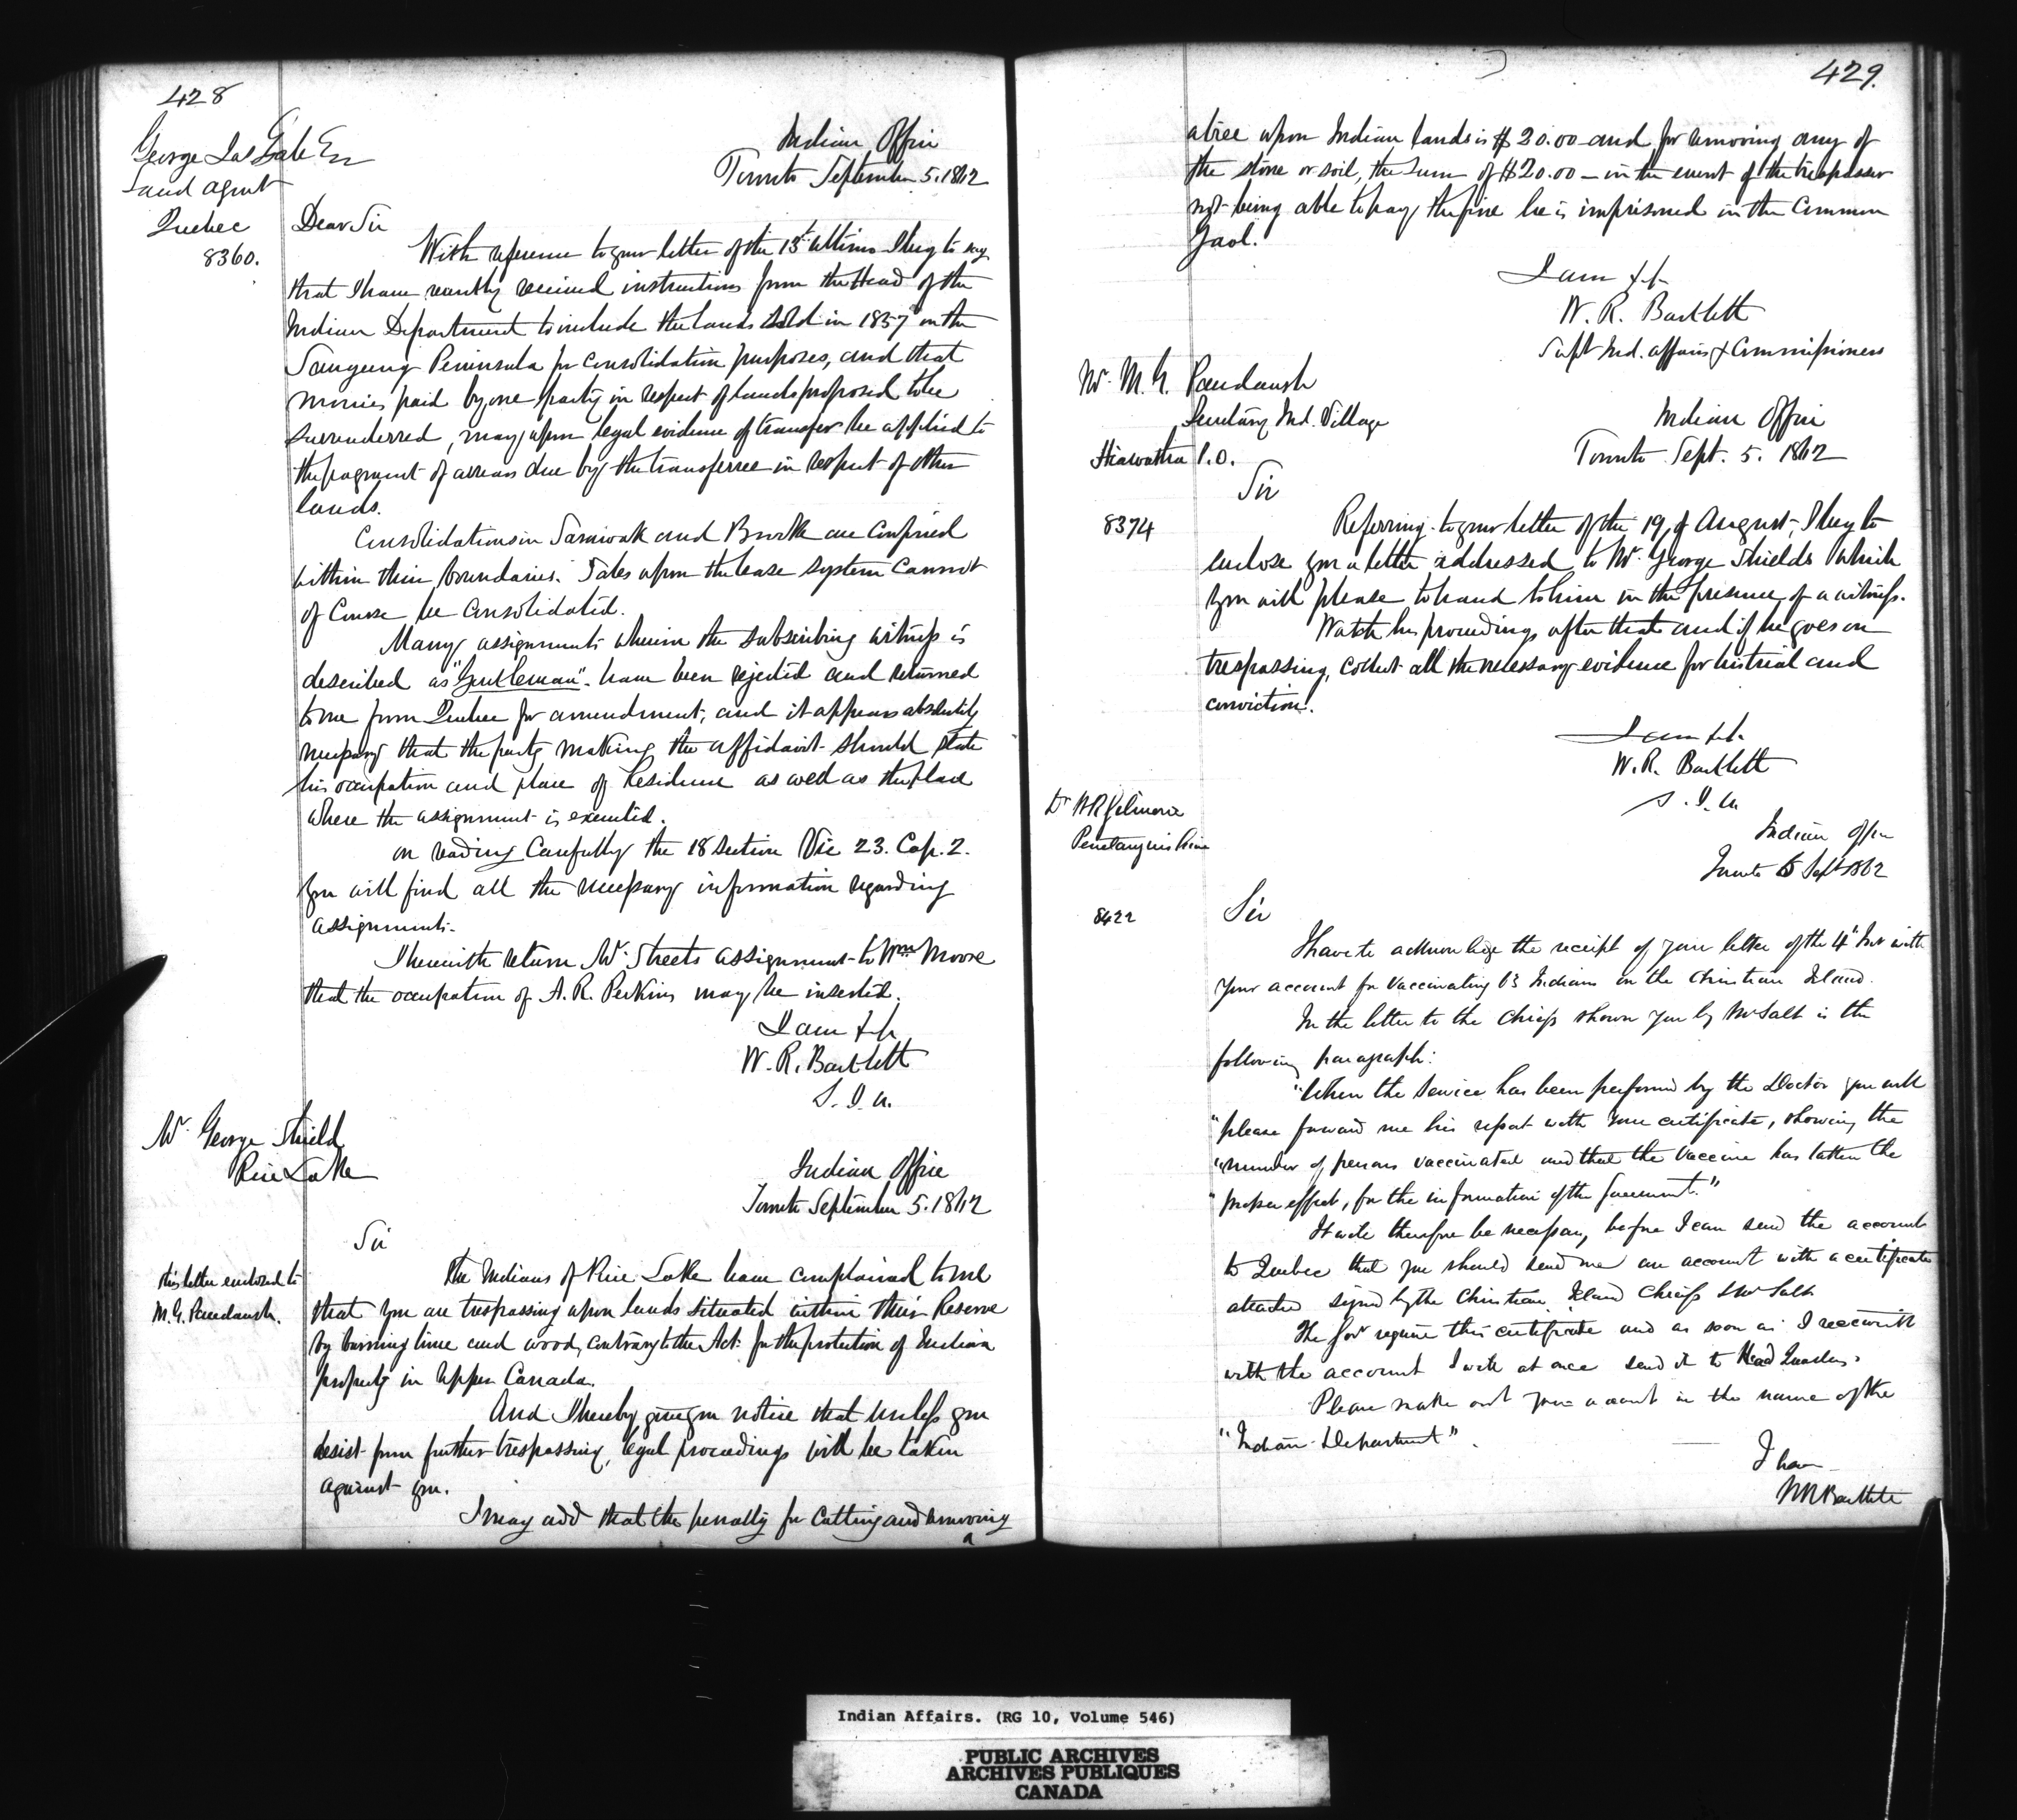 428
George Jas Gale Esq
Land Agent
Quebec
8360.
Indian Office
Toronto September 5. 1862
Dear Sir
With reference to your letter of the 13th ultimo I beg to say
that I have recently received instructions from the Head of the
Indian Department to include the lands sold in 1857 in the
Saugeeng Peninsula for consolidation purposes, and that
monies paid by one party in respect of lands proposed to be
surrenderred, may, upon legal evidence of transfer be applied to
the payment of arrears due by the transferree in respect of other
lands.
Consolidations in Sarawak and Brooke are confined
within their boundaries. Sales upon the lease system cannot
of Course be consolidated.
Many assignments wherein the subscribing witness is
described as "Gentleman" have been rejected and returned
to me from Quebec for amendment, and it appears absolutely
necessary that the party making the affidavit should state
his occupation and place of Residence as well as the place
where the assignment is executed.
on reading Carefully the 18 Section Vic 23. Cap. 2.
you will find all the necessary information regarding
assignments.
I herewith return Mr. Streets assignment to Wm Moore
that the occupation of A. R. Perkins may be inserted.
I am &c
W. R. Bartlett
S. I. A.
Mr. George Shield
Rice Lake
Indian Office
Toronto September 5. 1862
Sir
this letter enclosed to
M. G. Paudaush.
The Indians of Rice Lake have complained to me
that you are trespassing upon lands situated within their Reserve
by burning lime and wood, contrary to the Act for the protection of Indian
property in Upper Canada.
And I hereby give you notice that unless you
desist from further trespassing, legal proceedings will be taken
against you.
I may add that the penalty for Cutting and removing
a
429.
a tree upon Indian lands is $20.00 and for removing any of
the stone or soil, the Sum of $20.00 – in the event of the trespasser
not being able to pay the fine he is imprisoned in the Common
Gaol.
I am &c
W. R. Bartlett
Supt Ind. Affairs & Commissioner
Mr. M. G. Paudaush
Secretary Ind. Village
Hiawatha P.O.
Indian Office
Toronto Sept. 5. 1862
Sir
8374
Referring to your letter of the 19, of August, I beg to
enclose you a letter addressed to Mr. George Shields which
you will please to hand to him in the presence of a witness.
Watch his proceedings after that and if he goes on
trespassing, collect all the necessary evidence for his trial and
conviction.
I am &c.
W. R. Bartlett
S. I. A
Dr
Penetanguishine
Indian Office
Toronto 5 Sept 1862
8422
Sir
I have to acknowledge the receipt of your letter of the 4th Inst with
your account for vaccinating 63 Indians on the Christian Island.
In the letter to the Chiefs shown you by Mr Salt is the
following paragraph:
"When the service has been performed by the Doctor you will
"please forward me his report with your certificate, showing the
"number of persons vaccinated and that the vaccine has taken the
"proper effect, for the information of the Government."
It will therefore be necessary, before I can send the account
to Quebec that you should send me an account with a certificate
attached signed by the Christian Island Chiefs & Mr Salt
The Govt require this certificate and as soon as I receive it
with the account I will at once send it to Head Quarters.
Please make out your account in the name of the
"Indian Department".
I have
W R Bartlett
Indian Affairs. (RG 10, Volume 546)
PUBLIC ARCHIVES
ARCHIVES PUBLIQUES
CANADA